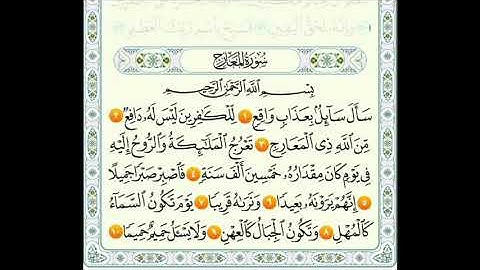 وَإِنَّهُۥ لَحَقُّ ٱلۡيَقِينِ ٥١ فَسَبِّحۡ بِٱسۡمِ رَبِّكَ ٱلۡعَظِيمِ ٥٢
سُورَةُ الْمَعَارِجِ
بِسۡمِ ٱللَّهِ ٱلرَّحۡمَٰنِ ٱلرَّحِيمِ
سَأَلَ سَآئِلُۢ بِعَذَابٖ وَاقِعٖ ١ لِّلۡكَٰفِرِينَ لَيۡسَ لَهُۥ دَافِعٞ ٢
مِّنَ ٱللَّهِ ذِي ٱلۡمَعَارِجِ ٣ تَعۡرُجُ ٱلۡمَلَٰٓئِكَةُ وَٱلرُّوحُ إِلَيۡهِ
فِي يَوۡمٖ كَانَ مِقۡدَارُهُۥ خَمۡسِينَ أَلۡفَ سَنَةٖ ٤ فَٱصۡبِرۡ صَبۡرٗا جَمِيلًا
٥ إِنَّهُمۡ يَرَوۡنَهُۥ بَعِيدٗا ٦ وَنَرَىٰهُ قَرِيبٗا ٧ يَوۡمَ تَكُونُ ٱلسَّمَآءُ
كَٱلۡمُهۡلِ ٨ وَتَكُونُ ٱلۡجِبَالُ كَٱلۡعِهۡنِ ٩ وَلَا يَسۡـَٔلُ حَمِيمٌ حَمِيمٗا ١٠